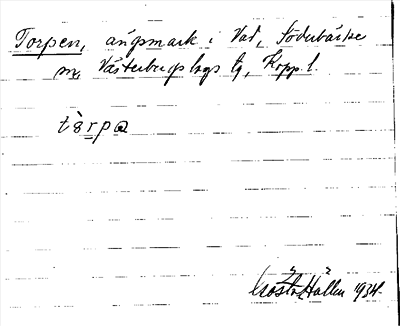 Torpen, ängsmark i Vad, Söderbärke
sn, Västerbergslags tg, Kopp. l.
tòrpa
Gösta Hallen 1934.